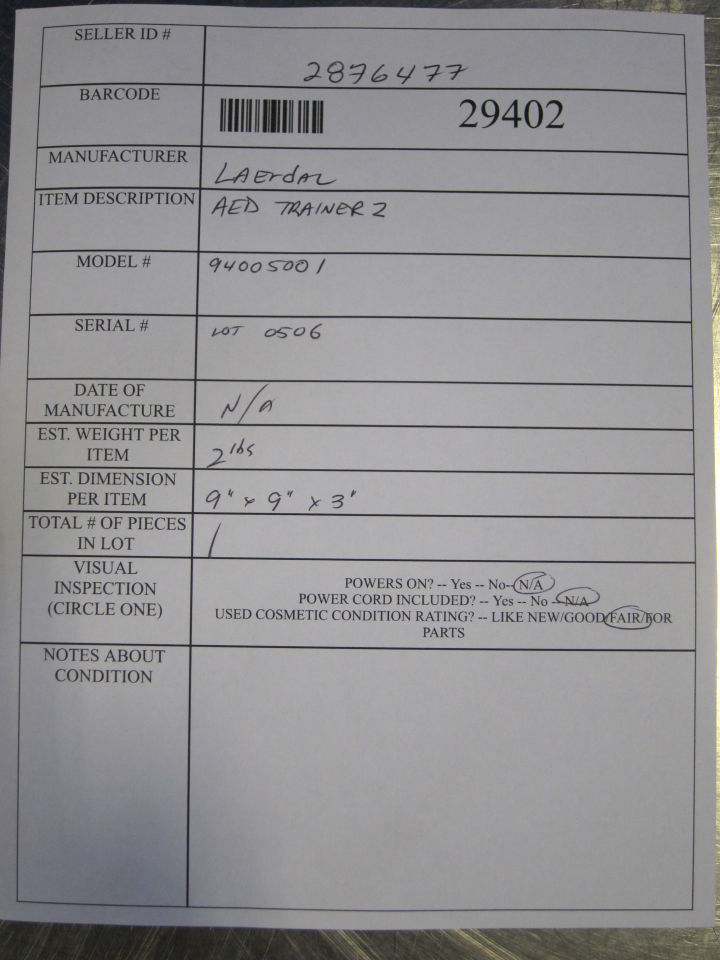 SELLER ID #
2876477
BARCODE
29402
MANUFACTURER
LAErdAL
ITEM DESCRIPTION
AED TRAINER 2
MODEL #
94005001
SERIAL #
LOT 0506
DATE OF
MANUFACTURE
N/A
EST. WEIGHT PER
ITEM
2 lbs
EST. DIMENSION
PER ITEM
9" x 9" x 3"
TOTAL # OF PIECES
IN LOT
1
VISUAL
INSPECTION
(CIRCLE ONE)
POWERS ON? -- Yes -- No--N/A
POWER CORD INCLUDED? -- Yes -- No --N/A
USED COSMETIC CONDITION RATING? -- LIKE NEW/GOOD/FAIR/FOR
PARTS
NOTES ABOUT
CONDITION